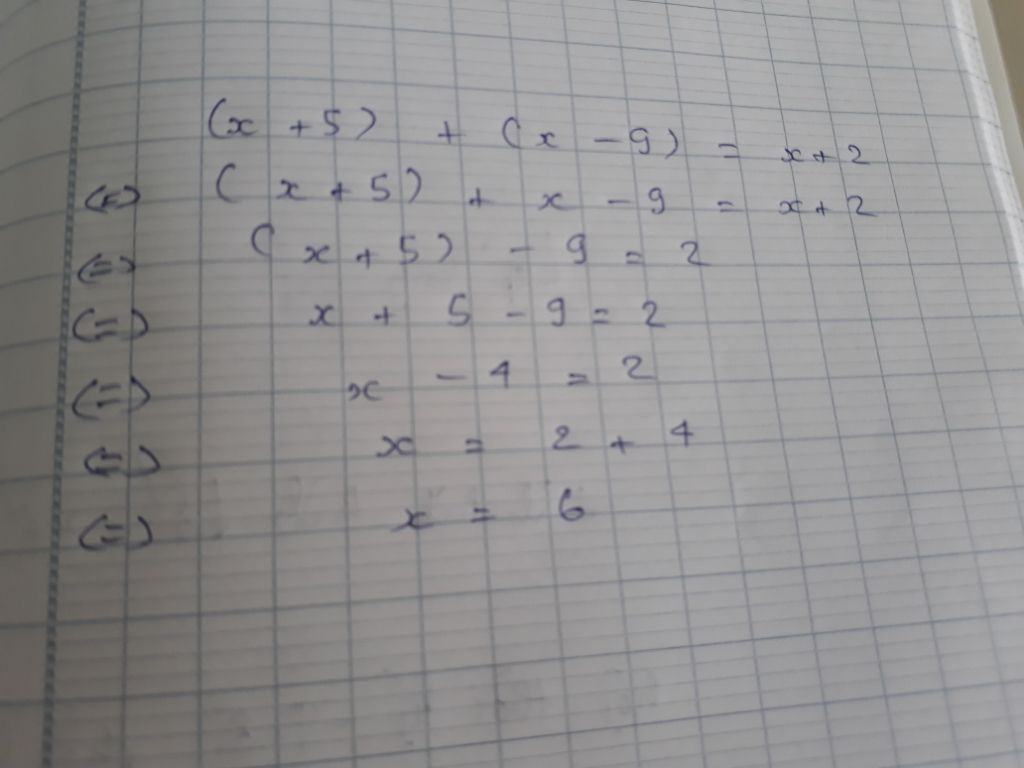 (x + 5) + (x - 9) = x + 2
(=) (x + 5) + x - 9 = x + 2
(=) (x + 5) - 9 = 2
(=) x + 5 - 9 = 2
(=) x - 4 = 2
(=) x = 2 + 4
(=) x = 6